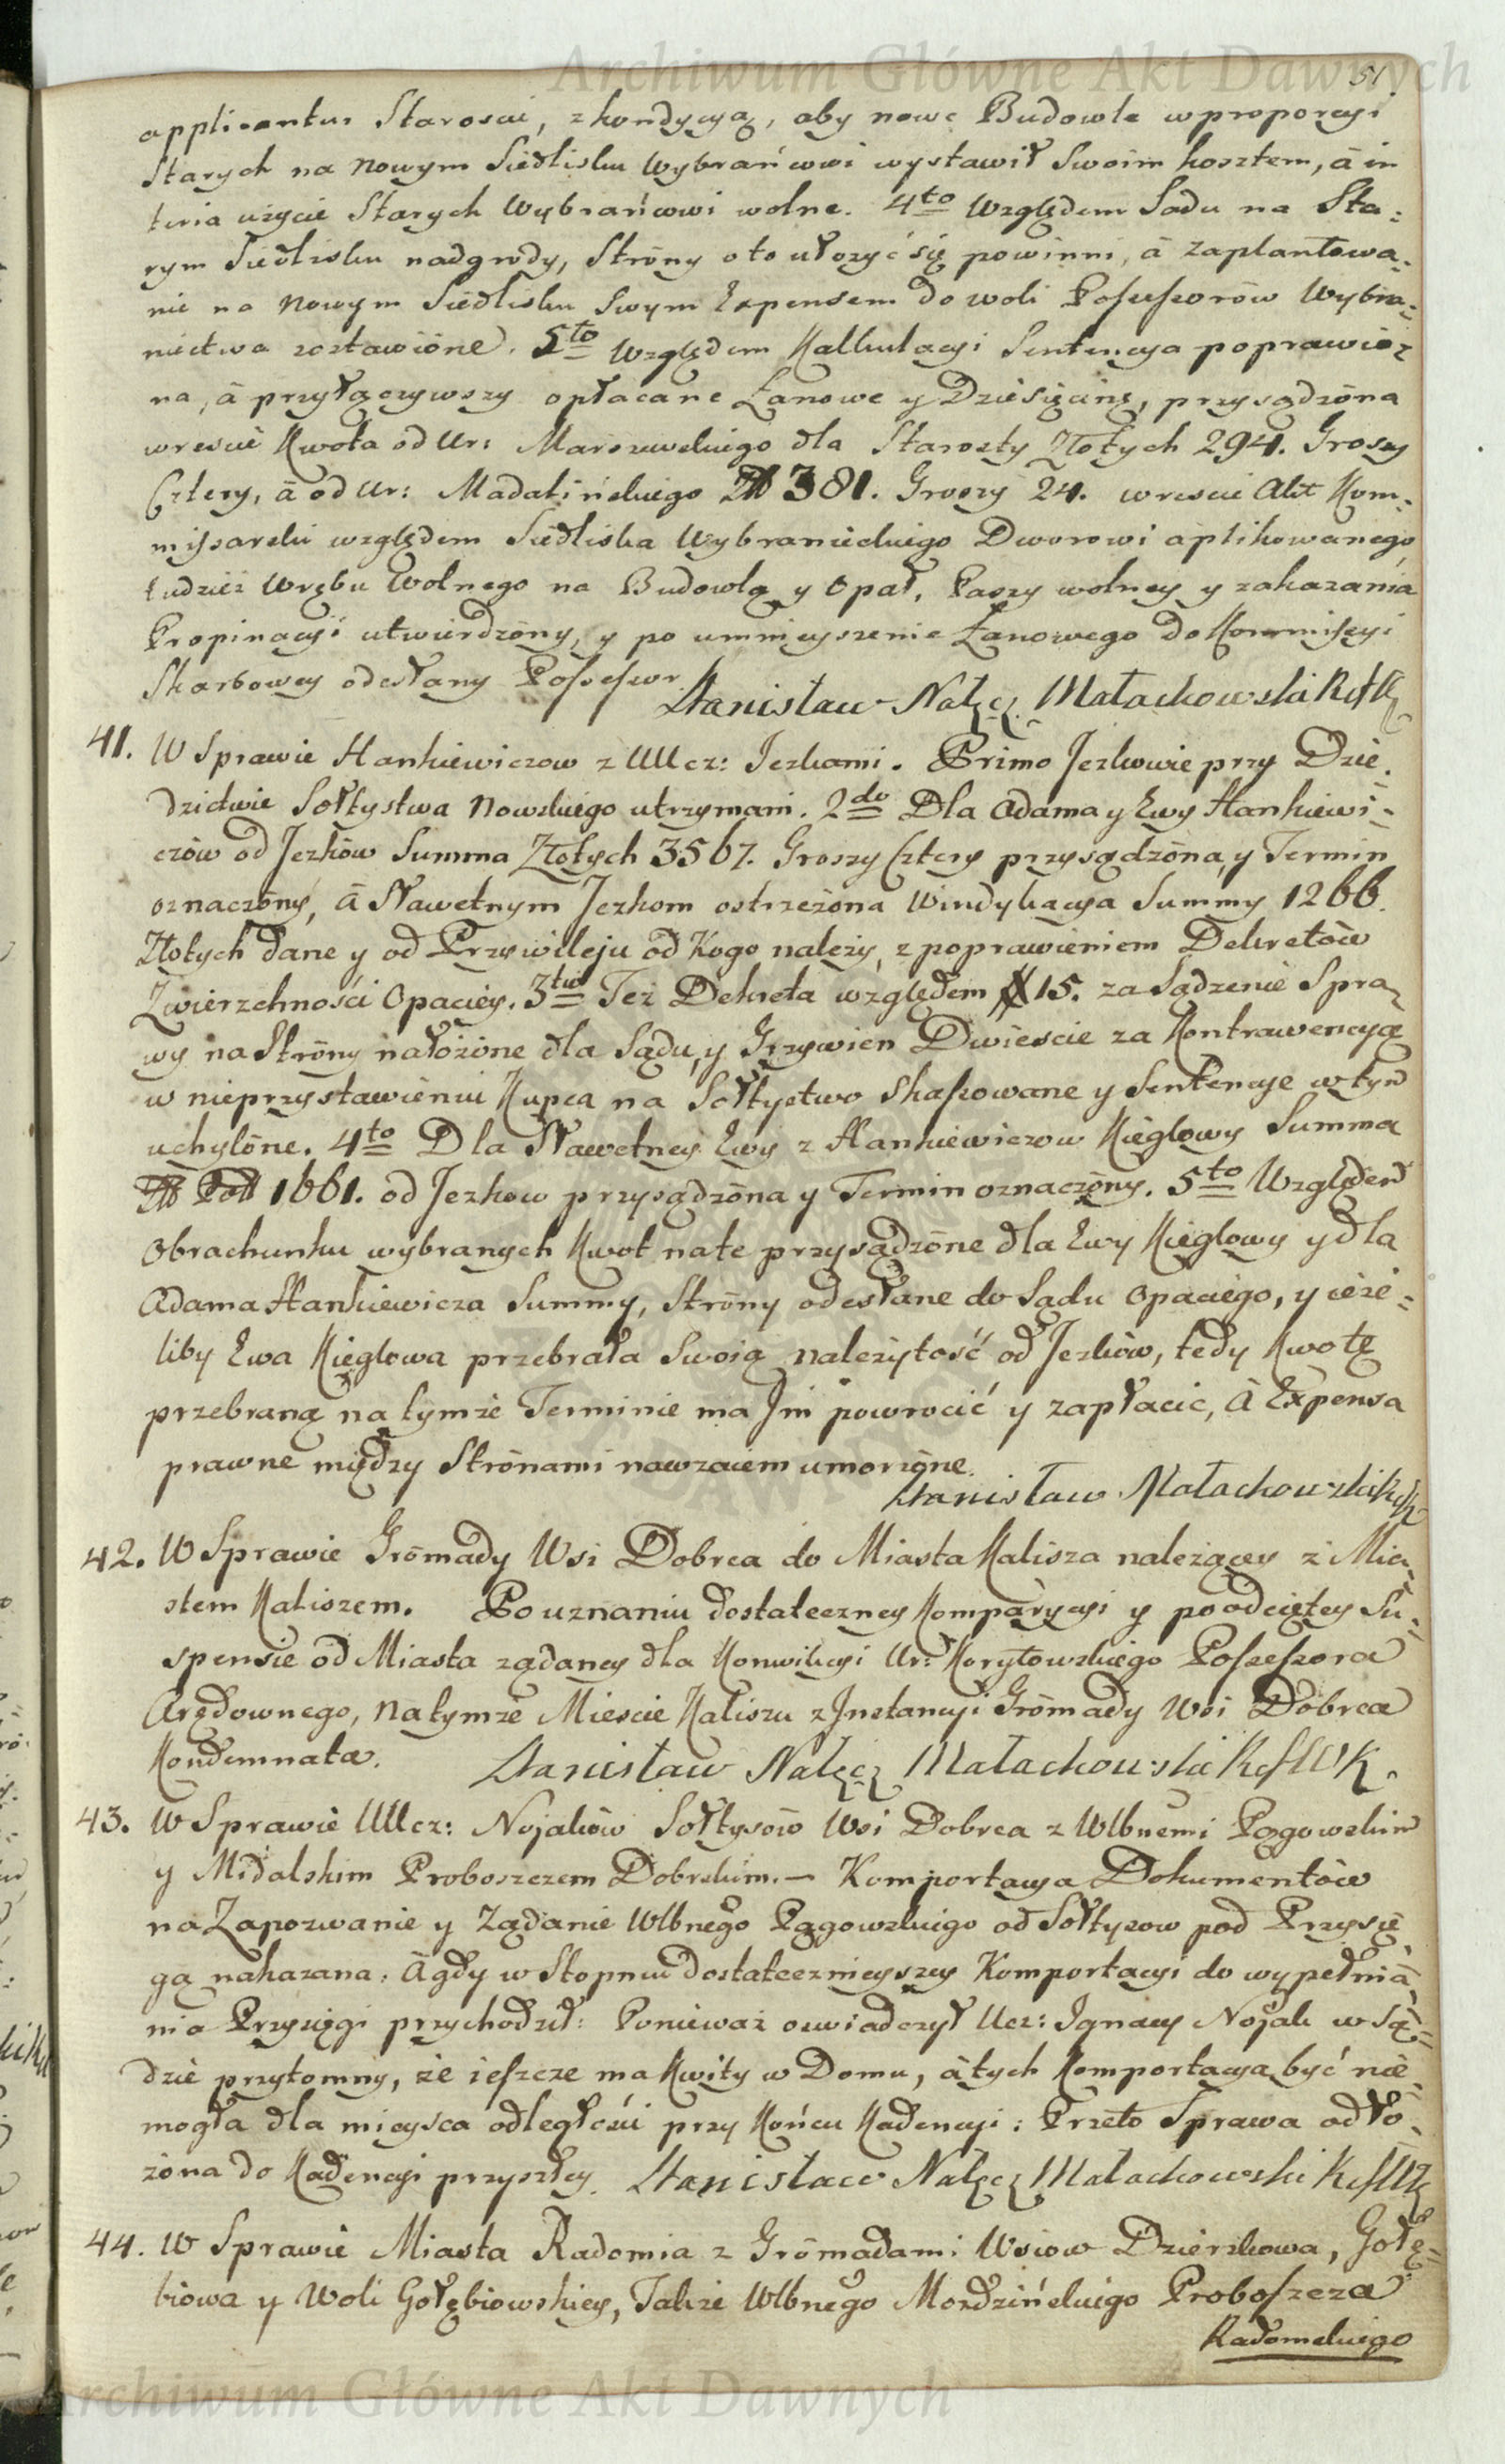 Archiwum Główne Akt Dawnych
51
applicantur Staroscie, z kondycyą, aby nowe Budowle w proporcyi
Starych na nowym Siedlisku Wybrańcowi wystawił Swoim kosztem, á in
teria użycie Starych Wybrańcowi wolne. 4to Względem Sadu na Sta:
rym Siedlisku nadgrody, Strony o to ułożyć się powinni, á zaplantowa:
nie na nowym Siedlisku Swym Expensem do woli Possessorów Wybra:
niectwa zostawione. 5to Względem Kalkulacyi Sentencya poprawio:
na, á przyłączywszy opłacane Łanowe y Dziesięcinę, przysądzona
wrescie Kwota od Ur: Marszewskiego dla Starosty Złotych 294. Groszy
Cztery, á od Ur: Madalińskiego Zł 381. Groszy 24. wrescie Akt Kom:
missarski względem Siedliska Wybranieckiego Dworowi aplikowanego
tudzież Wrębu Wolnego na Budowlą y Opał, Paszy wolney y zakazania
Propinacyi utwierdzony, y po umnieyszenie Łanowego do Kommissyi
Skarbowey odesłany Possessor.
Stanisław Nałęcz Małachowski RfK
41. W Sprawie Hankiewiczow z UUcz: Jezkami. Primo Jezkowie przy Dzie
dzictwie Sołtystwa Nowskiego utrzymani. 2do Dla Adama y Ewy Hankiewi:
czów od Jezków Summa Złotych 3567. Groszy Cztery przysądzona, y Termin
oznaczony, á Sławetnym Jezkom ostrzeżona Windykacya Summy 1266.
Złotych dane y od Przywileju od Kogo należy, z poprawieniem Dekretów
Zwierzchności Opaciey. 3tio Też Dekreta względem # 15. za Sądzenie Spra
wy na Strony nałożone dla Sądu, y Grzywien Dwiescie za Kontrawencyą
w nieprzystawieniu Kupca na Sołtystwo Skassowane y Sentencye w tym
uchylone. 4to Dla Sławetney Ewy z Hankiewiczow Kieglowy Summa
Zł Pol 1661. od Jezkow przysądzona y Termin oznaczony. 5to Względem
Obrachunku wybranych Kwot na te przysądzone dla Ewy Kieglowy y dla
Adama Hankiewicza Summy, Strony odesłane do Sądu Opaciego, y ieże:
liby Ewa Kieglowa przebrała Swoią należytość od Jezków, tedy Kwotę
przebraną na tymże Terminie ma Jm powrocić y zapłacic, á Expensa
prawne między Stronami nawzaiem umorzone.
Stanisław Małachowski RfK
42. W Sprawie Gromady Wsi Dobrca do Miasta Kalisza należącey z Mia
stem Kaliszem. Po uznaniu dostateczney Komparycyi y po odciętey Su:
spensie od Miasta żądaney dla Konwikcyi Ur: Korytowskiego Possessora
Arędownego, na tymże Miescie Kaliszu z Jnstancyi Gromady Wsi Dobrca
Kondemnata. Stanisław Nałęcz Małachowski RfWK.
43. W Sprawie UUcz: Nojaków Sołtysów Wsi Dobrca z Wlbnemi Pągowskim
y Midalskim Proboszczem Dobrskim. — Komportacya Dokumentów
na Zapozwanie y Żądanie Wlbnego Pągowskiego od Sołtysow pod Przysię
gą nakazana: A gdy w Stopniu dostatecznieyszey Komportacyi do wypełnia
nia Przysięgi przychodził: Ponieważ oswiadczył Ucz: Jgnacy Nojak w Są:
dzie przytomny, że ieszcze ma Kwity w Domu, á tych Komportacya być nie
mogła dla mieysca odległości przy Końcu Kadencyi: Przeto Sprawa odło:
żona do Kadencyi przyszłey. Stanisław Nałęcz Małachowski RfWK
44. W Sprawie Miasta Radomia z Gromadami Wsiow Dzierzkowa, Gołę:
biowa y Woli Gołębiowskiey, Także Wlbnego Mozdzińskiego Proboszcza
Radomskiego
Archiwum Główne Akt Dawnych